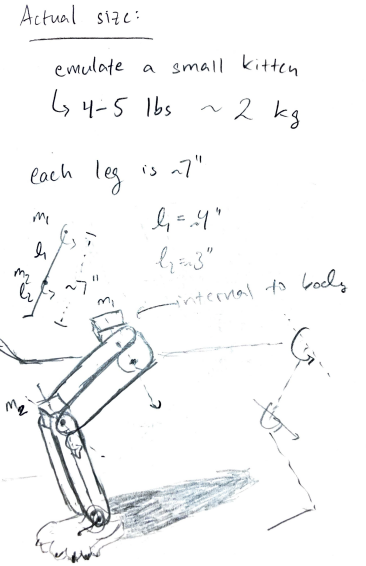 Actual size:
emulate a small kitten
↳ 4-5 lbs ~ 2 kg
each leg is ~7"
m₁
l₁ = ~4"
l₁
m₂
l₂ = ~3"
l₂
~7"
m₁
internal to body
m₂